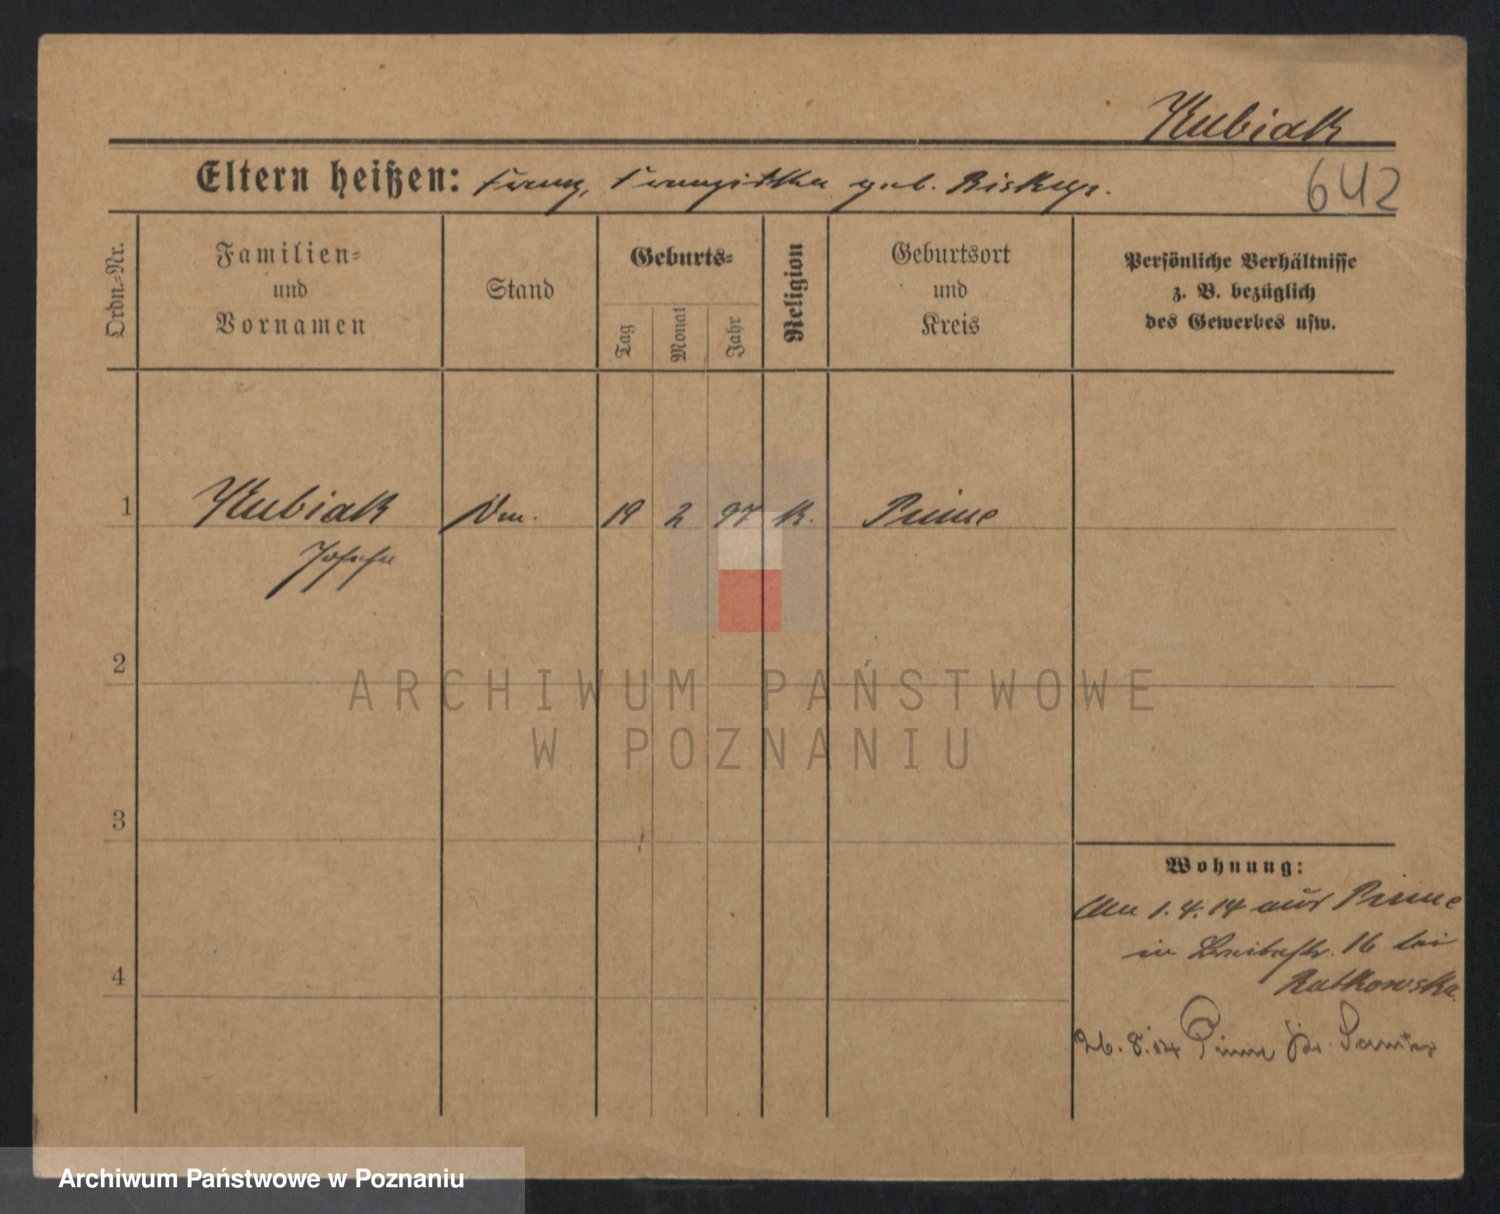 Kubiak
Eltern heißen: Franz, Franziska geb. Biskup.
642
Ordn.-Nr.
Familien-
und
Vornamen
Stand
Geburts-
Tag
Monat
Jahr
Religion
Geburtsort
und
Kreis
Persönliche Verhältnisse
z. B. bezüglich
des Gewerbes usw.
1 Kubiak 19 2 97 k. Pinne
Josefa
2
3
4
Wohnung:
Am 1.4.14 aus Pinne
in Breitestr. 16 bei
Ratkowska.
26.8.14 Pinne Kr. Samter
ARCHIWUM PAŃSTWOWE
W POZNANIU
Archiwum Państwowe w Poznaniu